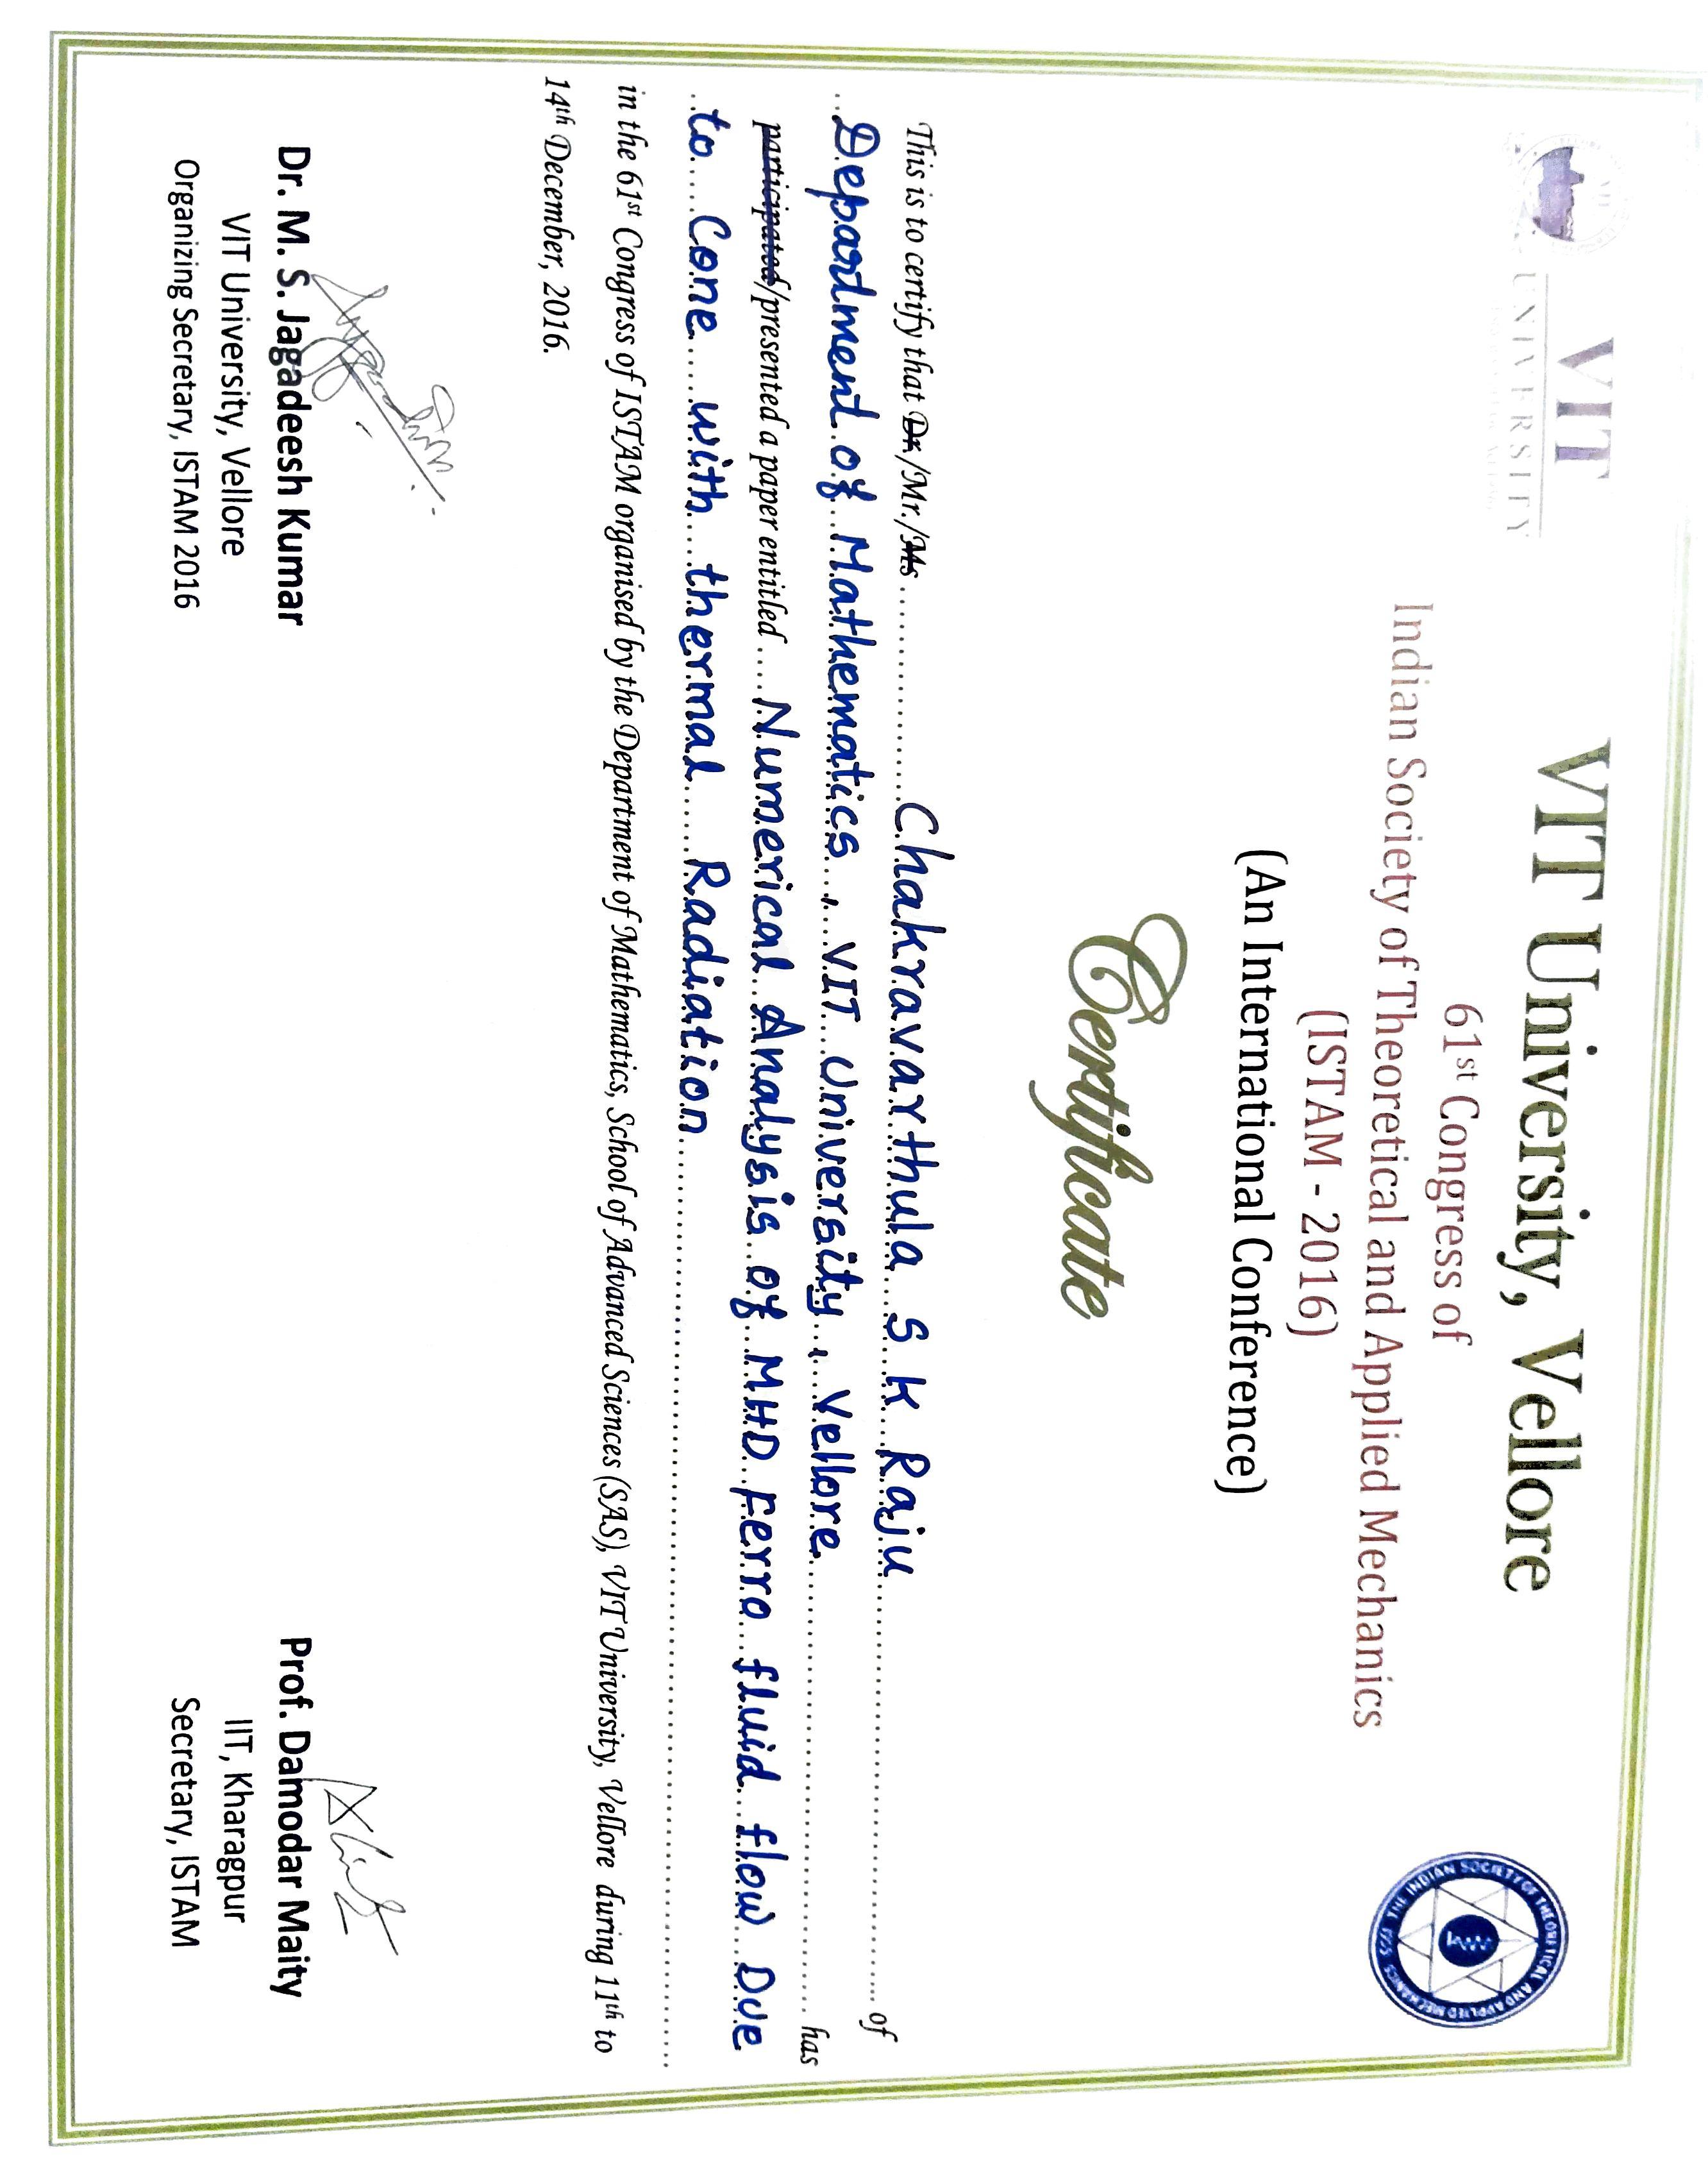 VIT
UNIVERSITY
VIT University, Vellore
61st Congress of
Indian Society of Theoretical and Applied Mechanics
(ISTAM - 2016)
(An International Conference)
THE INDIAN SOCIETY OF THEORETICAL AND APPLIED MECHANICS 1955
Certificate
This is to certify that Dr./Mr./Ms ........ Chakravarthula S K Raju ........ of
Department of Mathematics, VIT University, Vellore ........ has
participated/presented a paper entitled .... Numerical Analysis of MHD Ferro fluid flow Due
to Cone with thermal Radiation ........
in the 61st Congress of ISTAM organised by the Department of Mathematics, School of Advanced Sciences (SAS), VIT University, Vellore during 11th to
14th December, 2016.
Dr. M. S. Jagadeesh Kumar
VIT University, Vellore
Organizing Secretary, ISTAM 2016
Prof. Damodar Maity
IIT, Kharagpur
Secretary, ISTAM